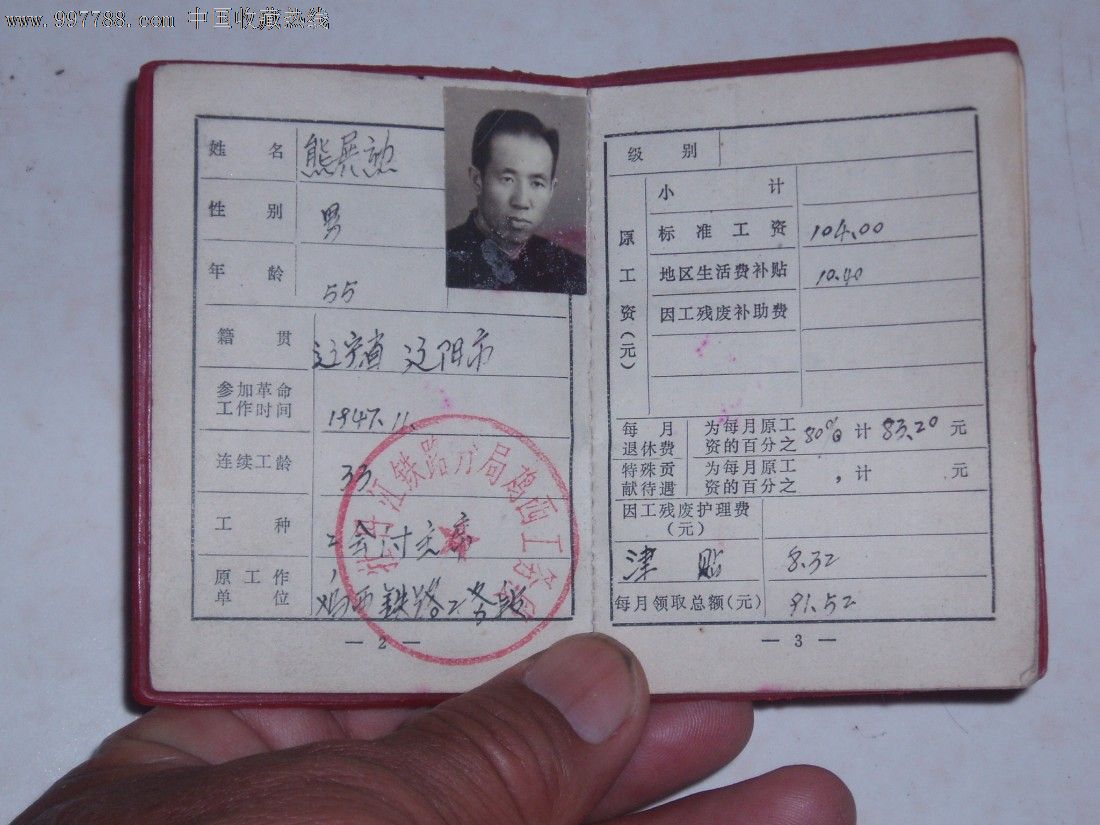 www.997788.com 中国收藏热线
姓名 熊展勋
性别 男
年龄 55
籍贯 辽宁省 辽阳市
参加革命工作时间 1947.11.
连续工龄 33
工种 工会付主席
原工作单位 鸡西铁路工务段
牡丹江铁路分局鸡西工务段
— 2 —
级别
原工资(元)
小计
标准工资 104.00
地区生活费补贴 10.40
因工残废补助费
每月退休费 为每月原工资的百分之 80% 计 83.20 元
特殊贡献待遇 为每月原工资的百分之 , 计 元
因工残废护理费(元)
津贴 8.32
每月领取总额(元) 91.52
— 3 —